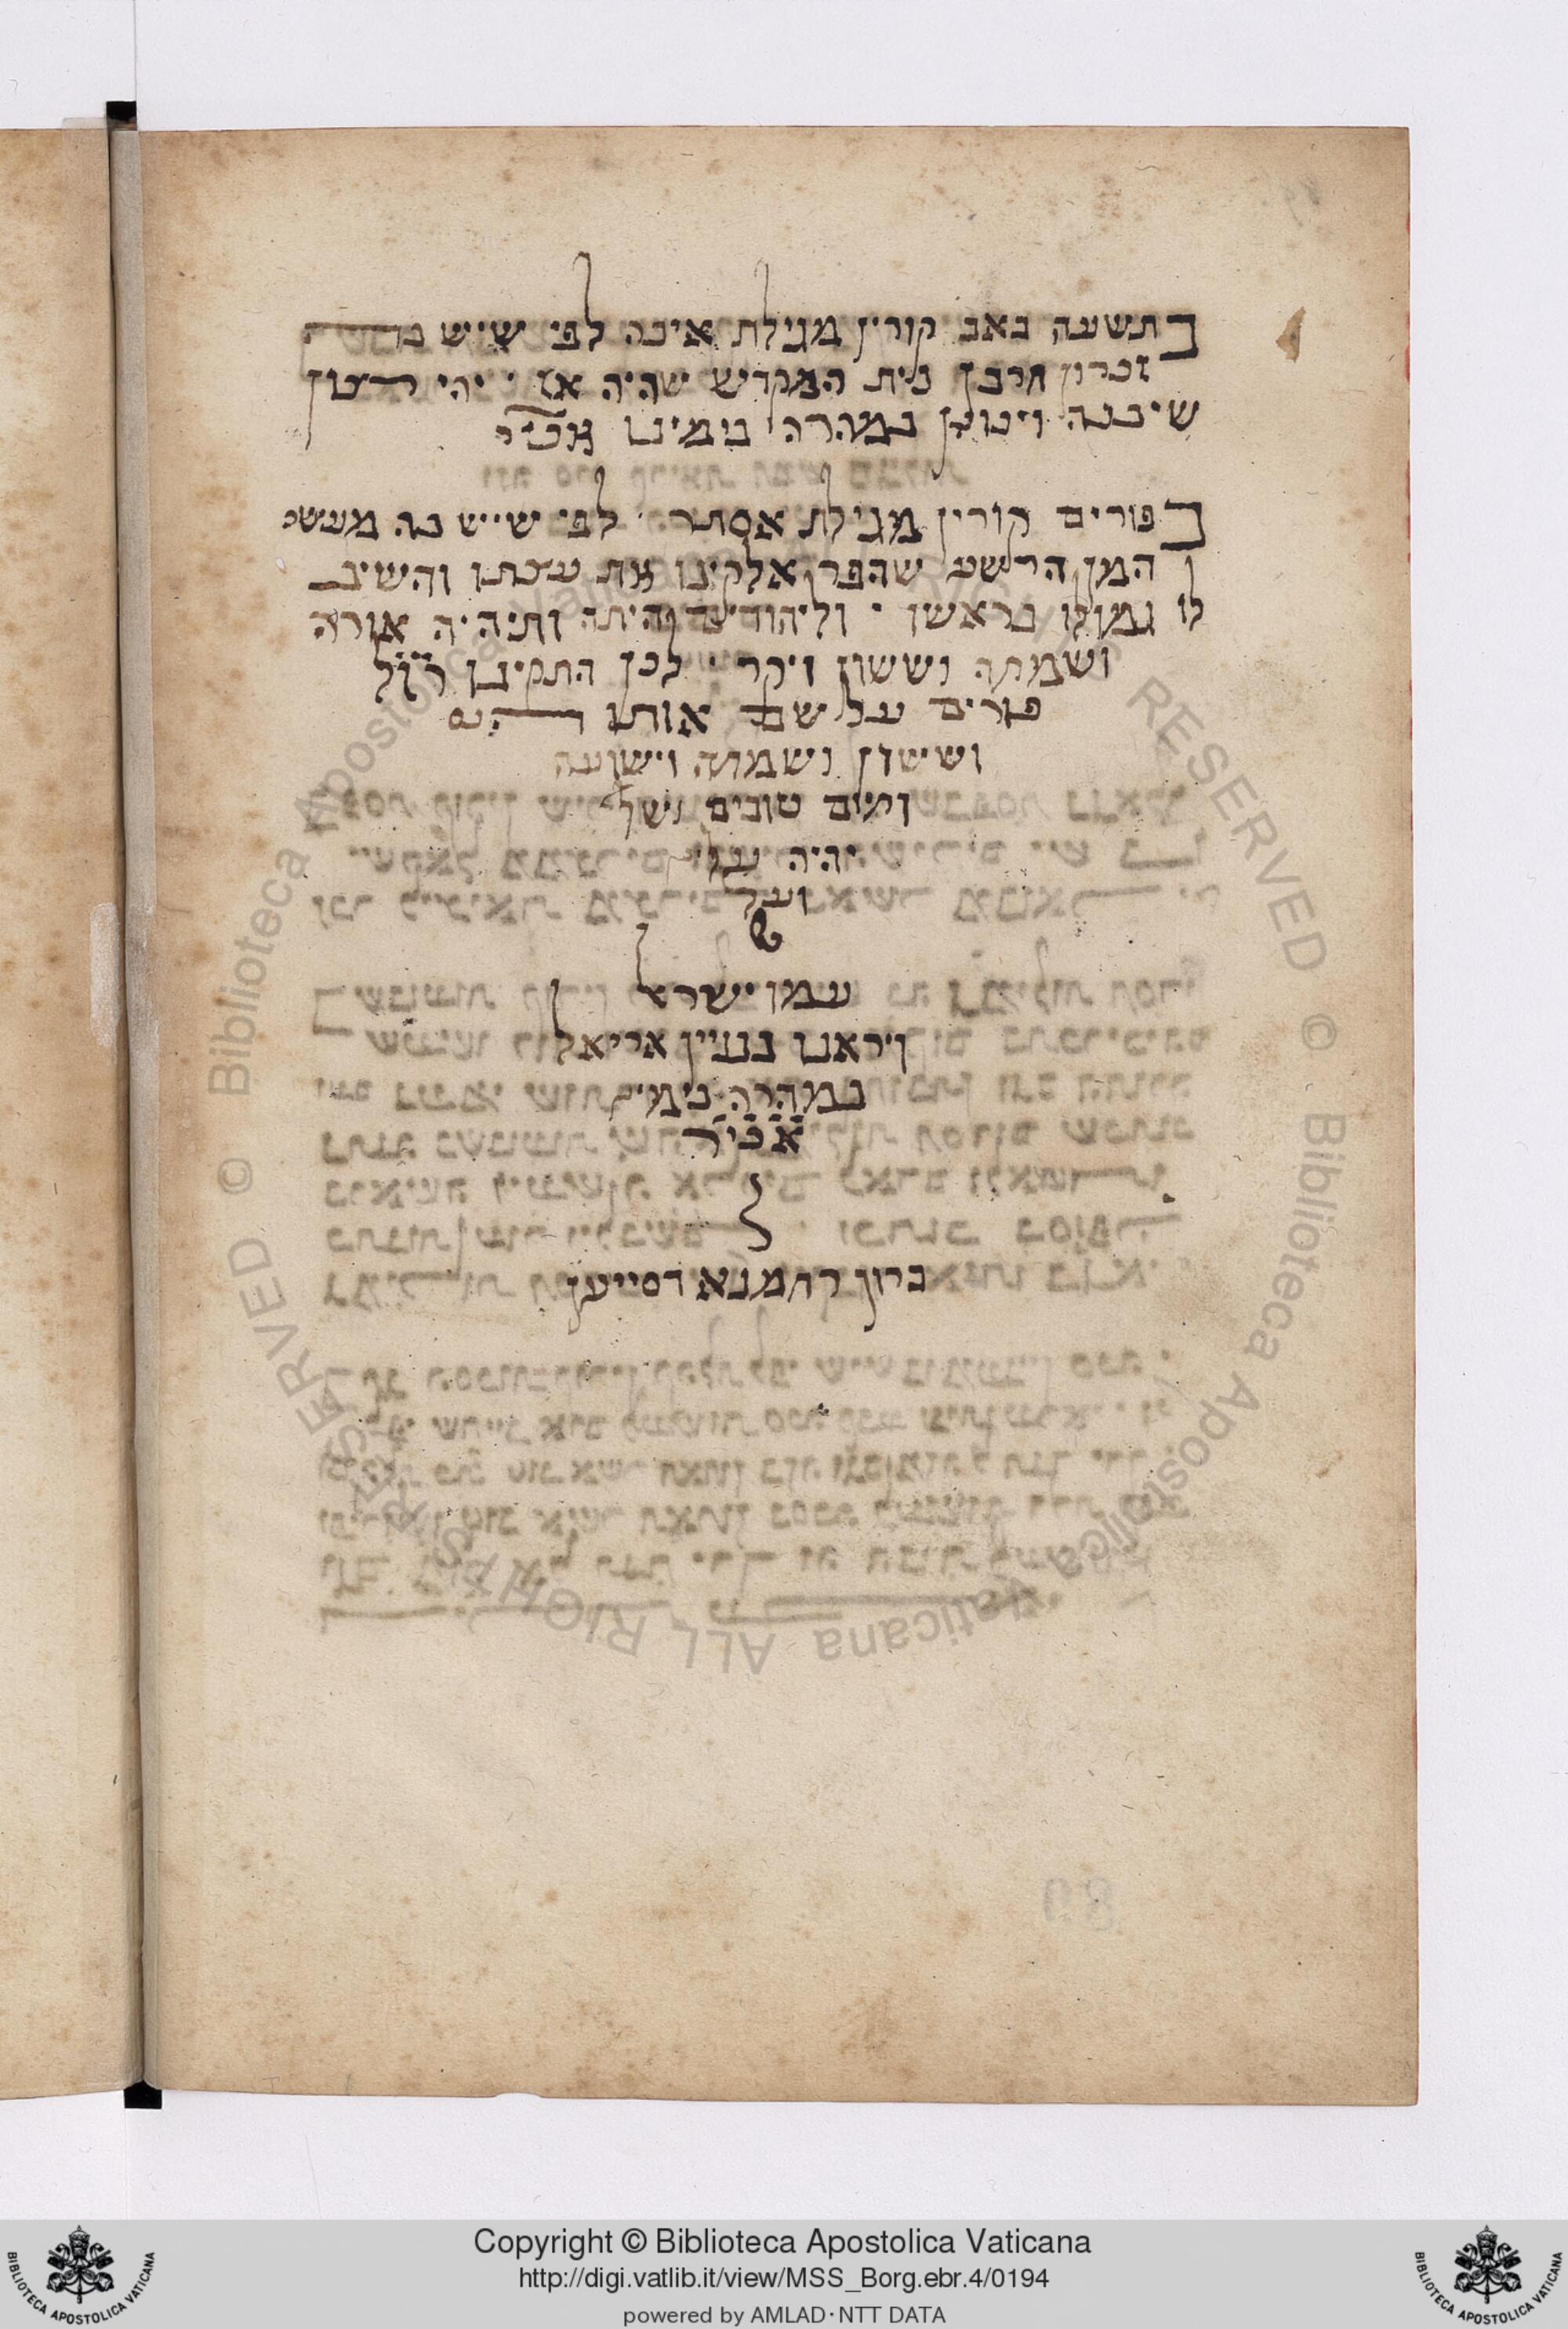 בתשעה באב קורין מגילת איכה לפי שיש בה
זכרון חרבן בית המקדש שהיה אז · יהי רצון
שיבנה ויכונן במהרה בימינו אכי״ר
בפורים קורין מגילת אסתר · לפי שיש בה מעשה
המן הרשע שהפר אלקינו את עצתו והשיב
לו גמולו בראשו · וליהודים היתה ותהיה אורה
ושמחה וששון ויקר · לכן התקינו רז״ל
פורים על שם אותו הנס
וששון ושמחה וישועה
וימים טובים
יהיה עלי
ועל
עמן ישראל
ויראנו בבניין אריאל
במהרה בימי
אכי״ר
ברוך רחמנא דסייען
Copyright © Biblioteca Apostolica Vaticana
http://digi.vatlib.it/view/MSS_Borg.ebr.4/0194
powered by AMLAD · NTT DATA
BIBLIOTECA APOSTOLICA VATICANA
BIBLIOTECA APOSTOLICA VATICANA
© Biblioteca Apostolica Vaticana ALL RIGHTS RESERVED
© Biblioteca Apostolica Vaticana ALL RIGHTS RESERVED